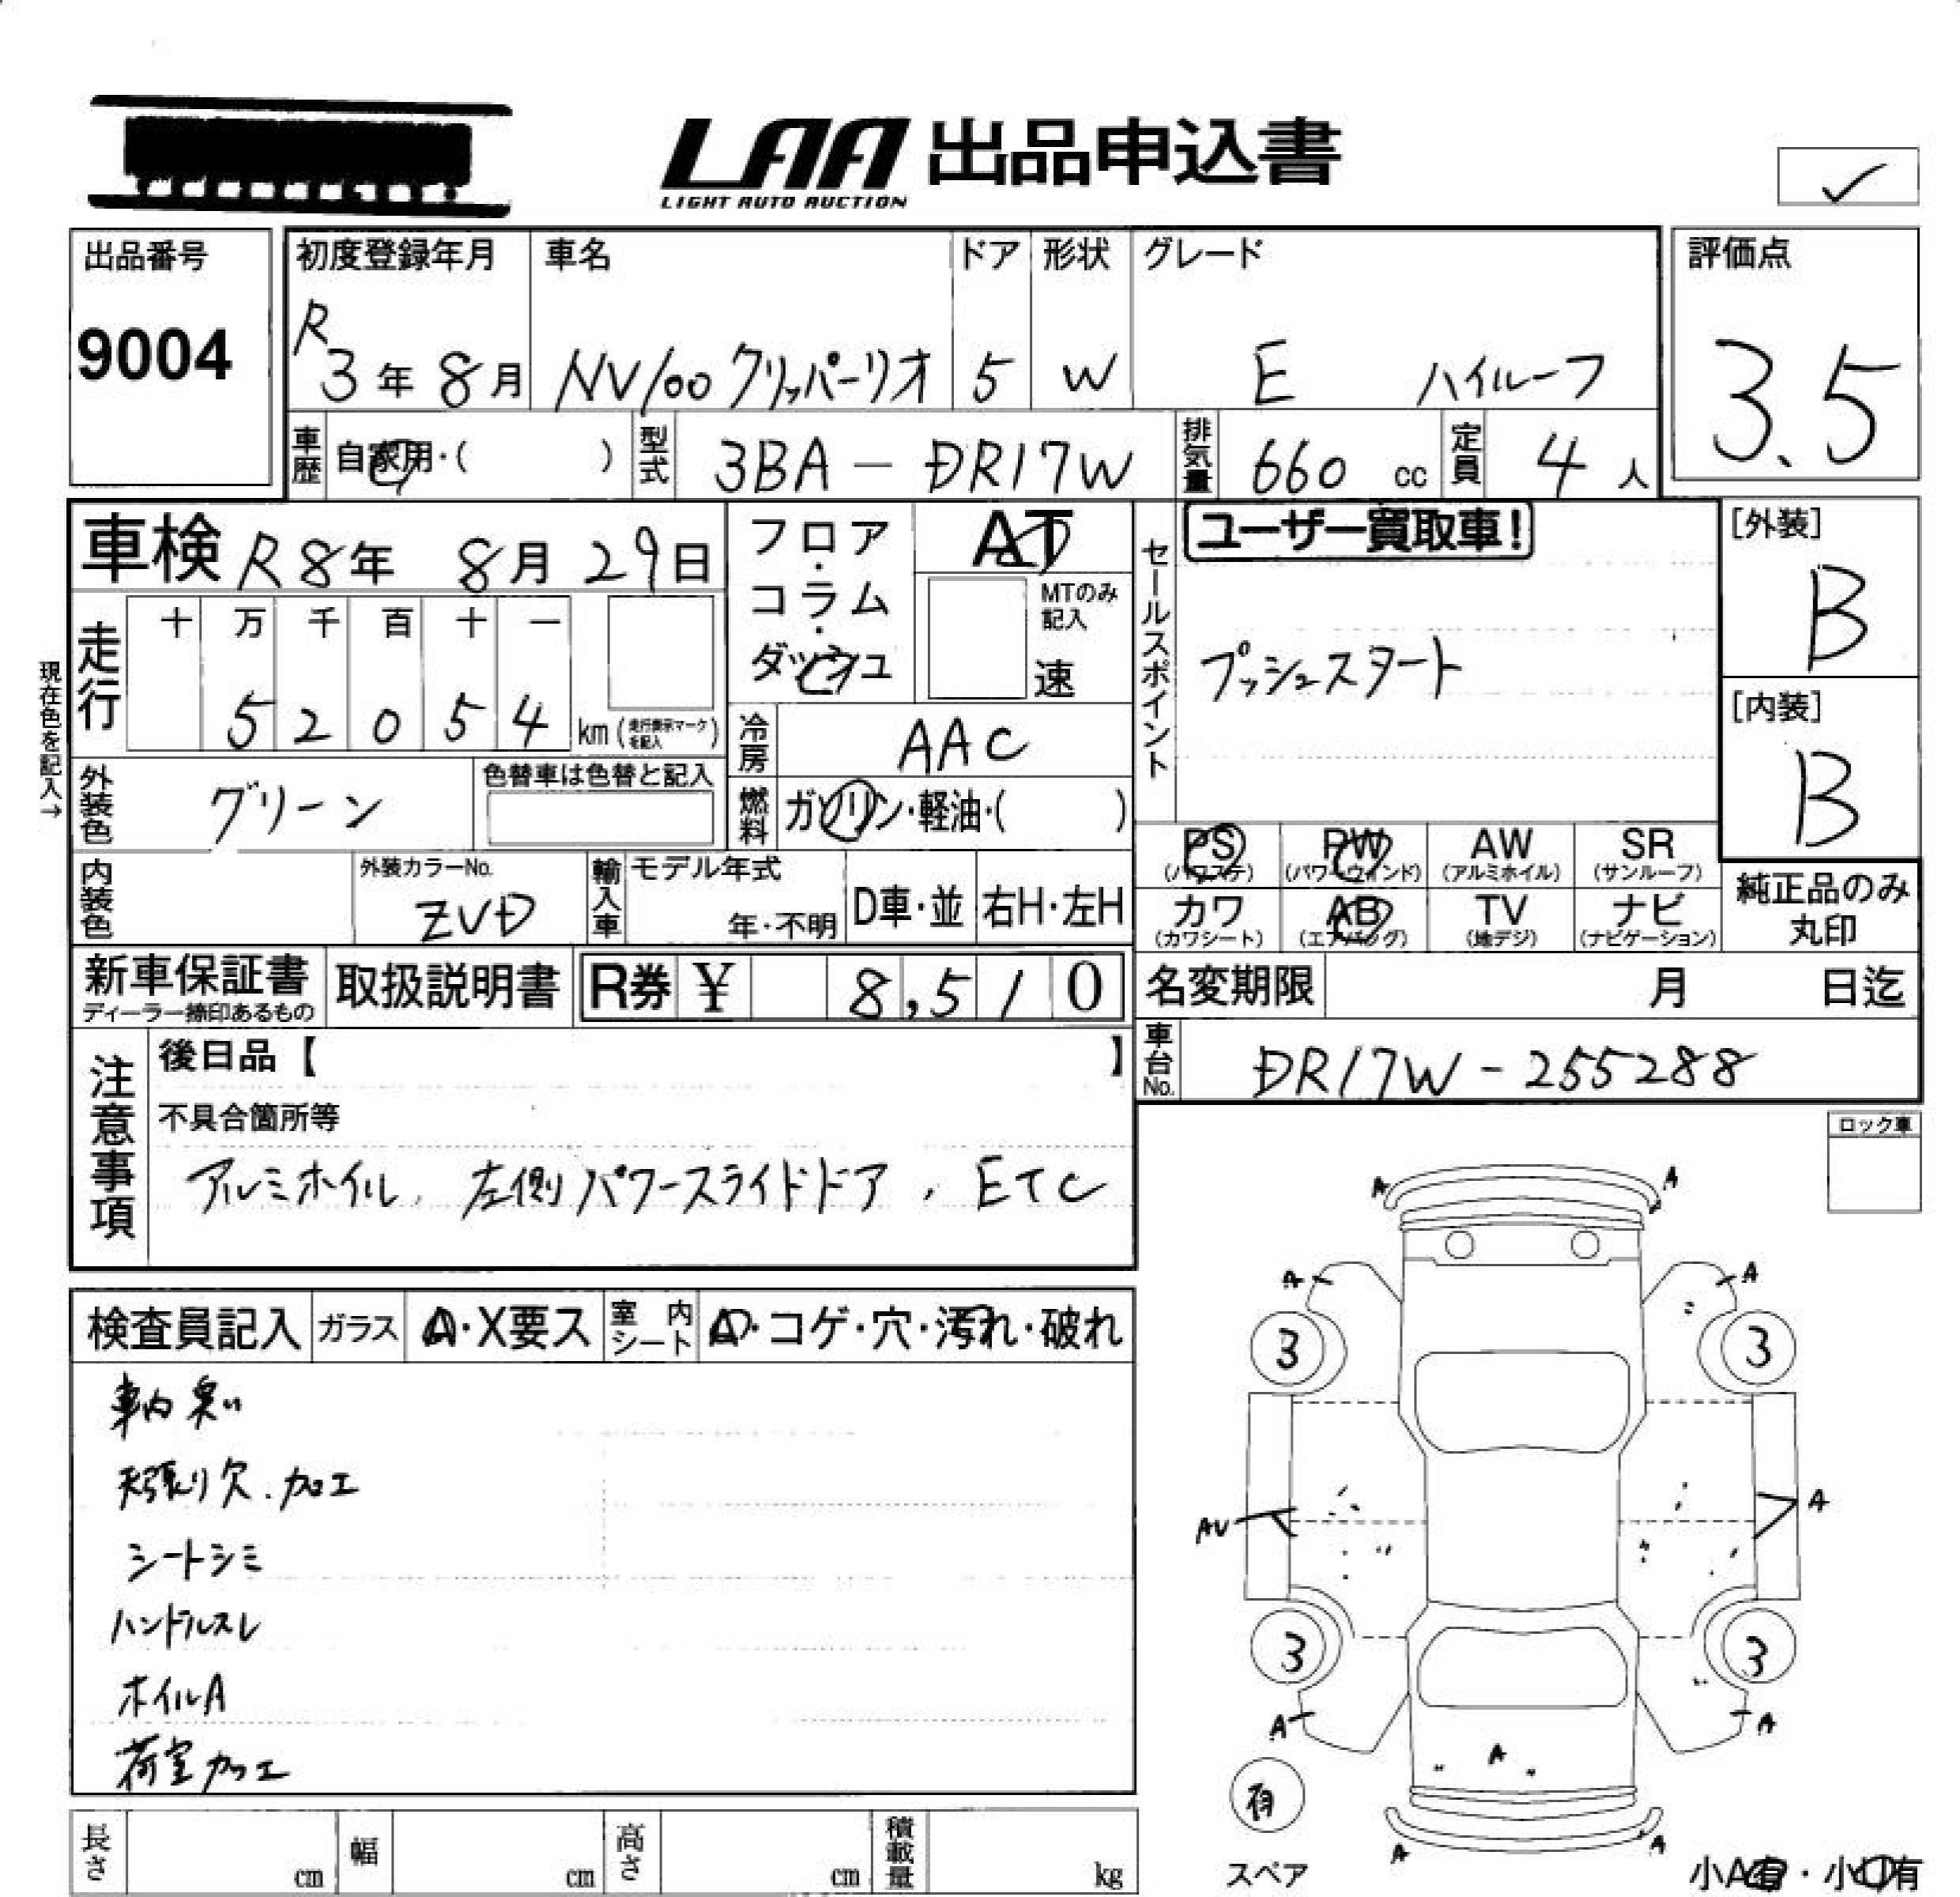 LAA 出品申込書
LIGHT AUTO AUCTION
出品番号
9004
初度登録年月
R
3年 8月
車名
NV100クリッパーリオ
ドア
5
形状
W
グレード
E ハイルーフ
評価点
3.5
車歴 自家用・( )
型式 3BA-DR17W
排気量 660 cc
定員 4人
車検 R8年 8月29日
フロア・コラム・ダッシュ
AT
MTのみ記入
速
セールスポイント
ユーザー買取車!
プッシュスタート
[外装]
B
[内装]
B
現在色を記入→
走行
十 万 千 百 十 一
5 2 0 5 4 km (走行表示マークを記入)
冷房 AAC
外装色 グリーン
色替車は色替と記入
燃料 ガソリン・軽油・( )
内装色
外装カラーNo.
ZVD
輸入車
モデル年式
年・不明
D車・並
右H・左H
PS (パワステ)
PW (パワーウインド)
AW (アルミホイル)
SR (サンルーフ)
カワ (カワシート)
AB (エアバッグ)
TV (地デジ)
ナビ (ナビゲーション)
純正品のみ
丸印
新車保証書
ディーラー捺印あるもの
取扱説明書
R券 ¥ 8,510
名変期限 月 日迄
車台No. DR17W-255288
注意事項
後日品【 】
不具合箇所等
アルミホイル、左側パワースライドドア、ETC
ロック車
検査員記入
ガラス A・X要ス
室内シート A・コゲ・穴・汚れ・破れ
車内臭い
天張り穴.加工
シートシミ
ハンドルスレ
ホイルA
荷室加工
A A
A A
3 3
AU A
3 3
A A
A
有
スペア
A A
小A有・小U有
長さ cm
幅 cm
高さ cm
積載量 kg